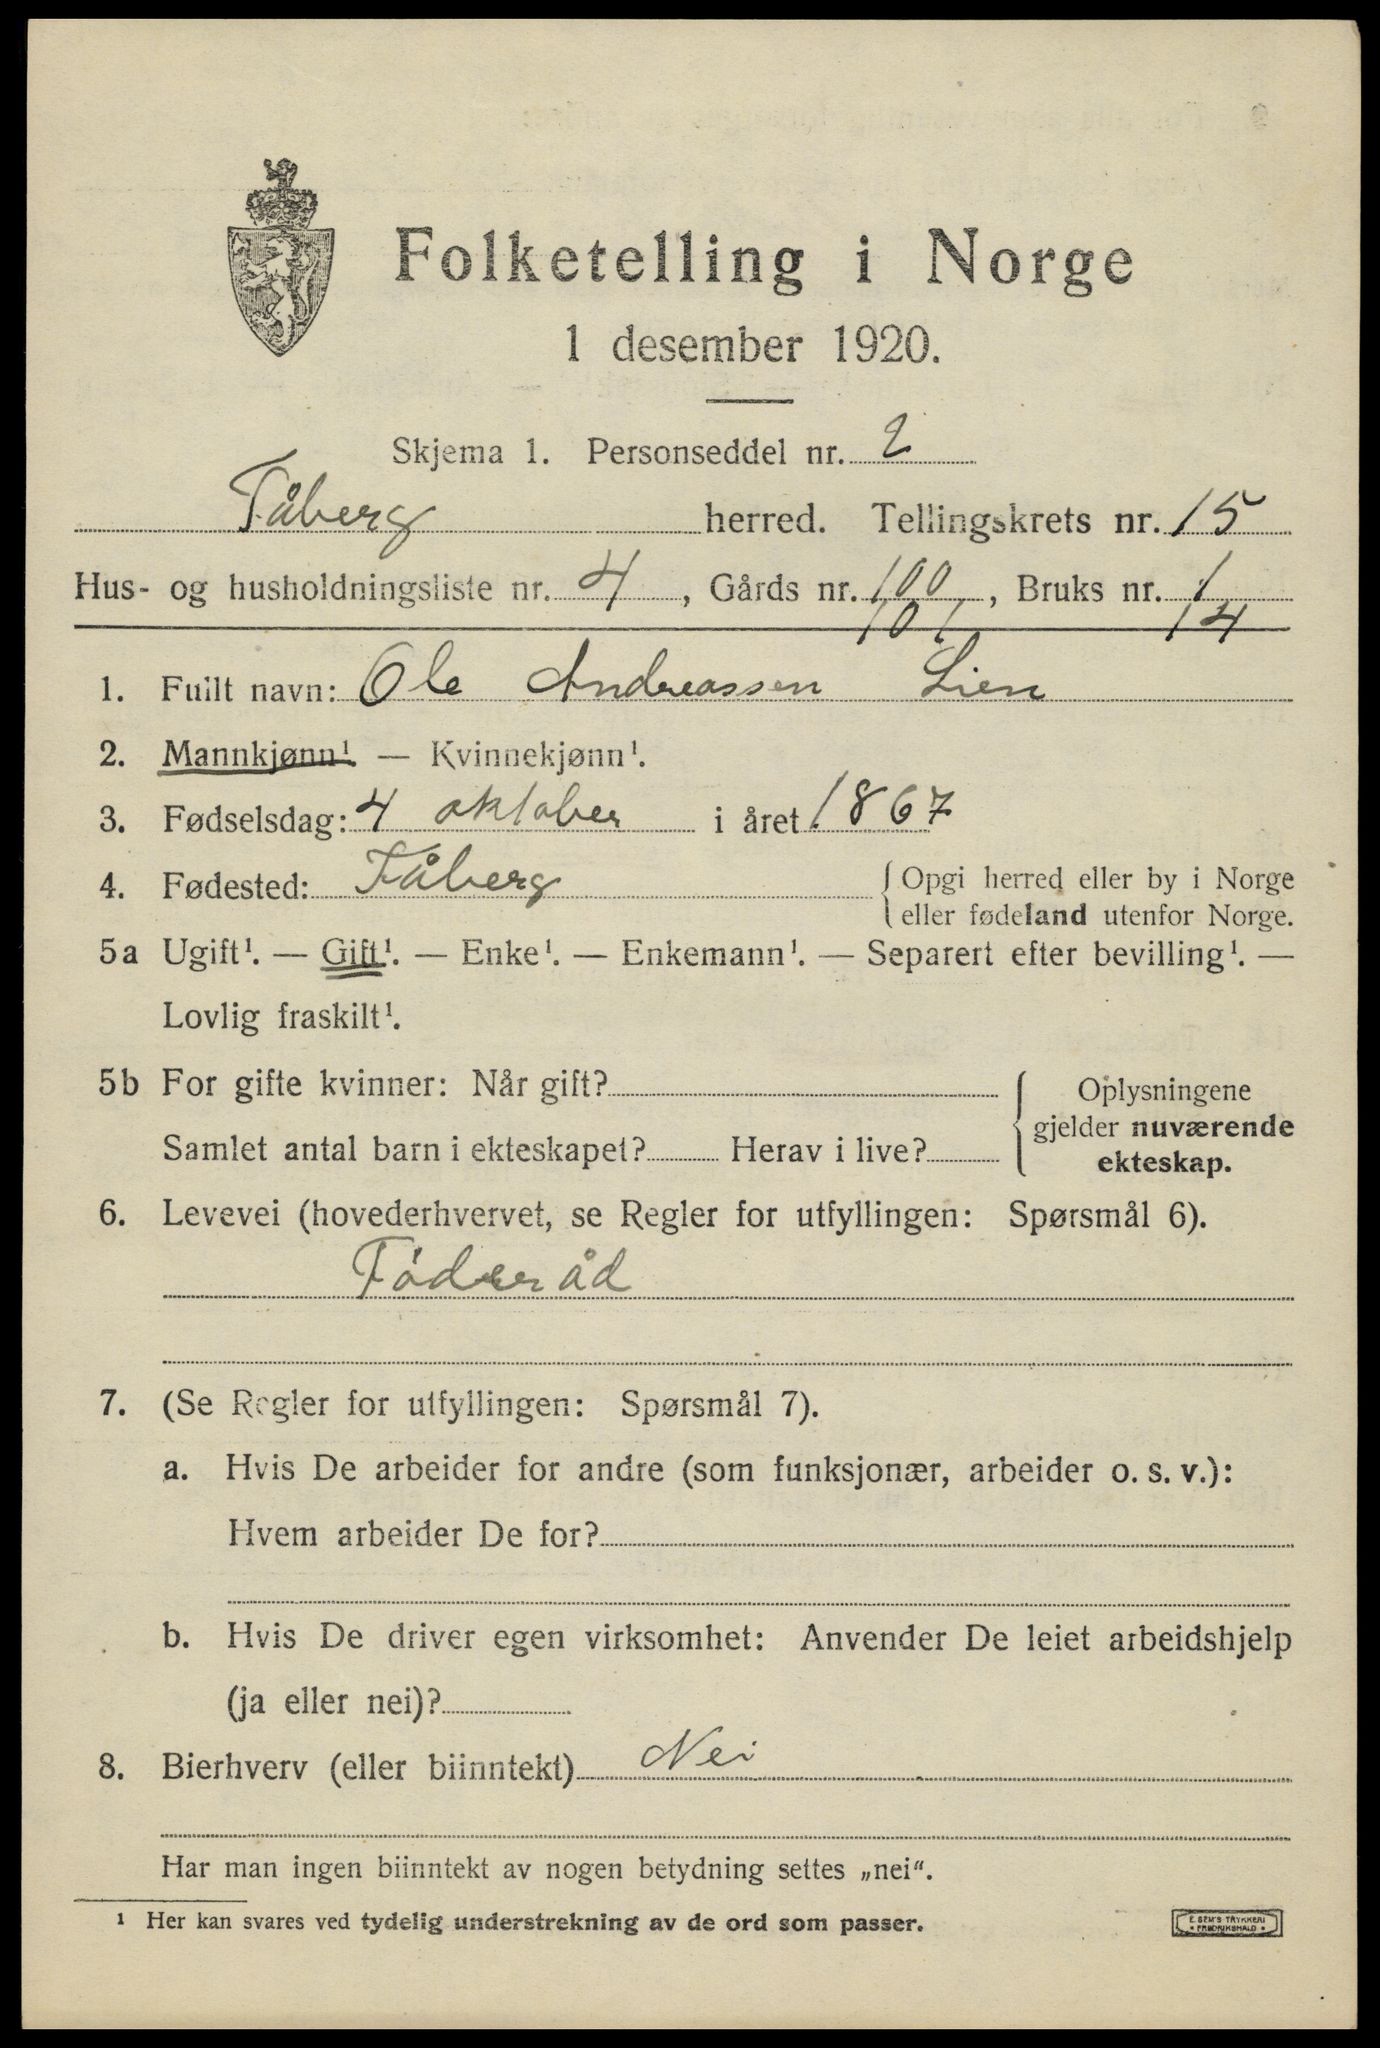 Folketelling i Norge
1 desember 1920.
Skjema 1. Personseddel nr. 2
Fåberg herred. Tellingskrets nr. 15
Hus- og husholdningsliste nr. 4, Gårds nr. 100, Bruks nr. 1
101 14
1. Fullt navn: Ole Andreassen Lien
2. Mannkjønn¹ — Kvinnekjønn¹.
3. Fødselsdag: 4 oktober i året 1867
4. Fødested: Fåberg { Opgi herred eller by i Norge
eller fødeland utenfor Norge.
5a Ugift¹. — Gift¹. — Enke¹. — Enkemann¹. — Separert efter bevilling¹. —
Lovlig fraskilt¹.
5b For gifte kvinner: Når gift? { Oplysningene
gjelder nuværende
Samlet antal barn i ekteskapet? Herav i live? ekteskap.
6. Levevei (hovederhvervet, se Regler for utfyllingen: Spørsmål 6).
Føderåd
7. (Se Regler for utfyllingen: Spørsmål 7).
a. Hvis De arbeider for andre (som funksjonær, arbeider o. s. v.):
Hvem arbeider De for?
b. Hvis De driver egen virksomhet: Anvender De leiet arbeidshjelp
(ja eller nei)?
8. Bierhverv (eller biinntekt) Nei
Har man ingen biinntekt av nogen betydning settes „nei“.
¹ Her kan svares ved tydelig understrekning av de ord som passer.
E. SEM'S TRYKKERI
• FREDRIKSHALD •